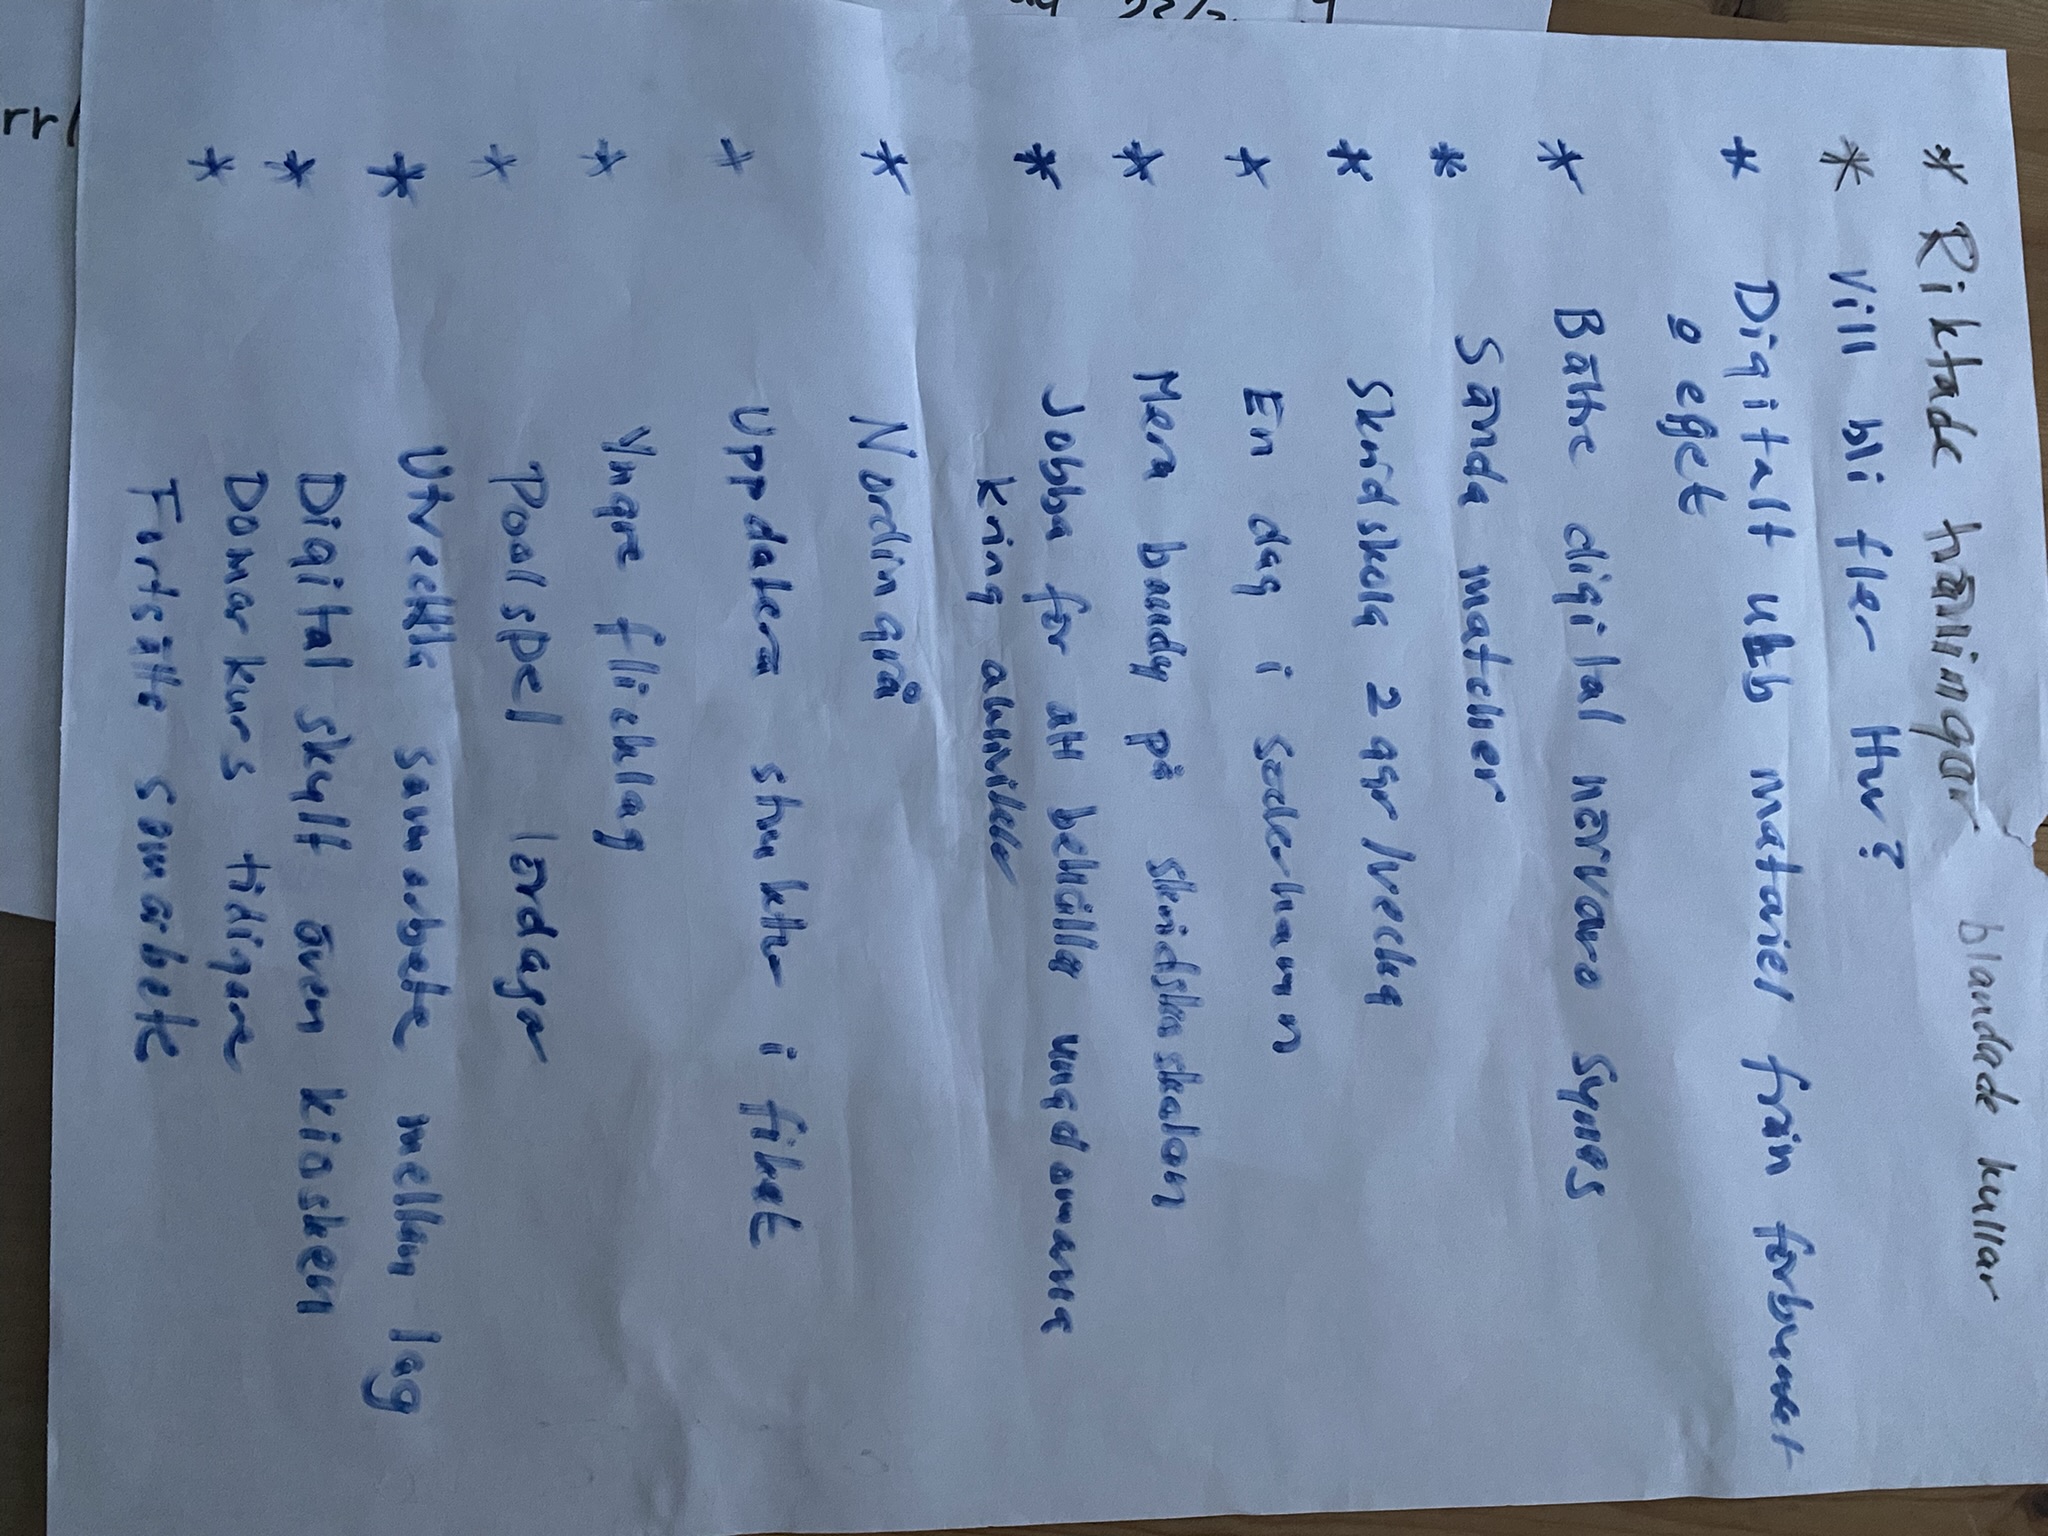 * Riktade träningar blandade kullar
* Vill bli fler Hur?
* Digitalt utb matariel från förbundet
o eget
* Bättre digital närvaro synas
* Sända matcher
* Skridskola 2 ggr/vecka
* En dag i Söderhamn
* Mera bandy på skridskoskolan
* Jobba för att behålla ungdomarna
kring
* Nordingrå
* Uppdatera struktur i fiket
* Yngre flicklag
* Poolspel lördagar
* Utveckla samarbete mellan lag
* Digital skylt även kiosken
* Domarkurs tidigare
Fortsätta samarbete